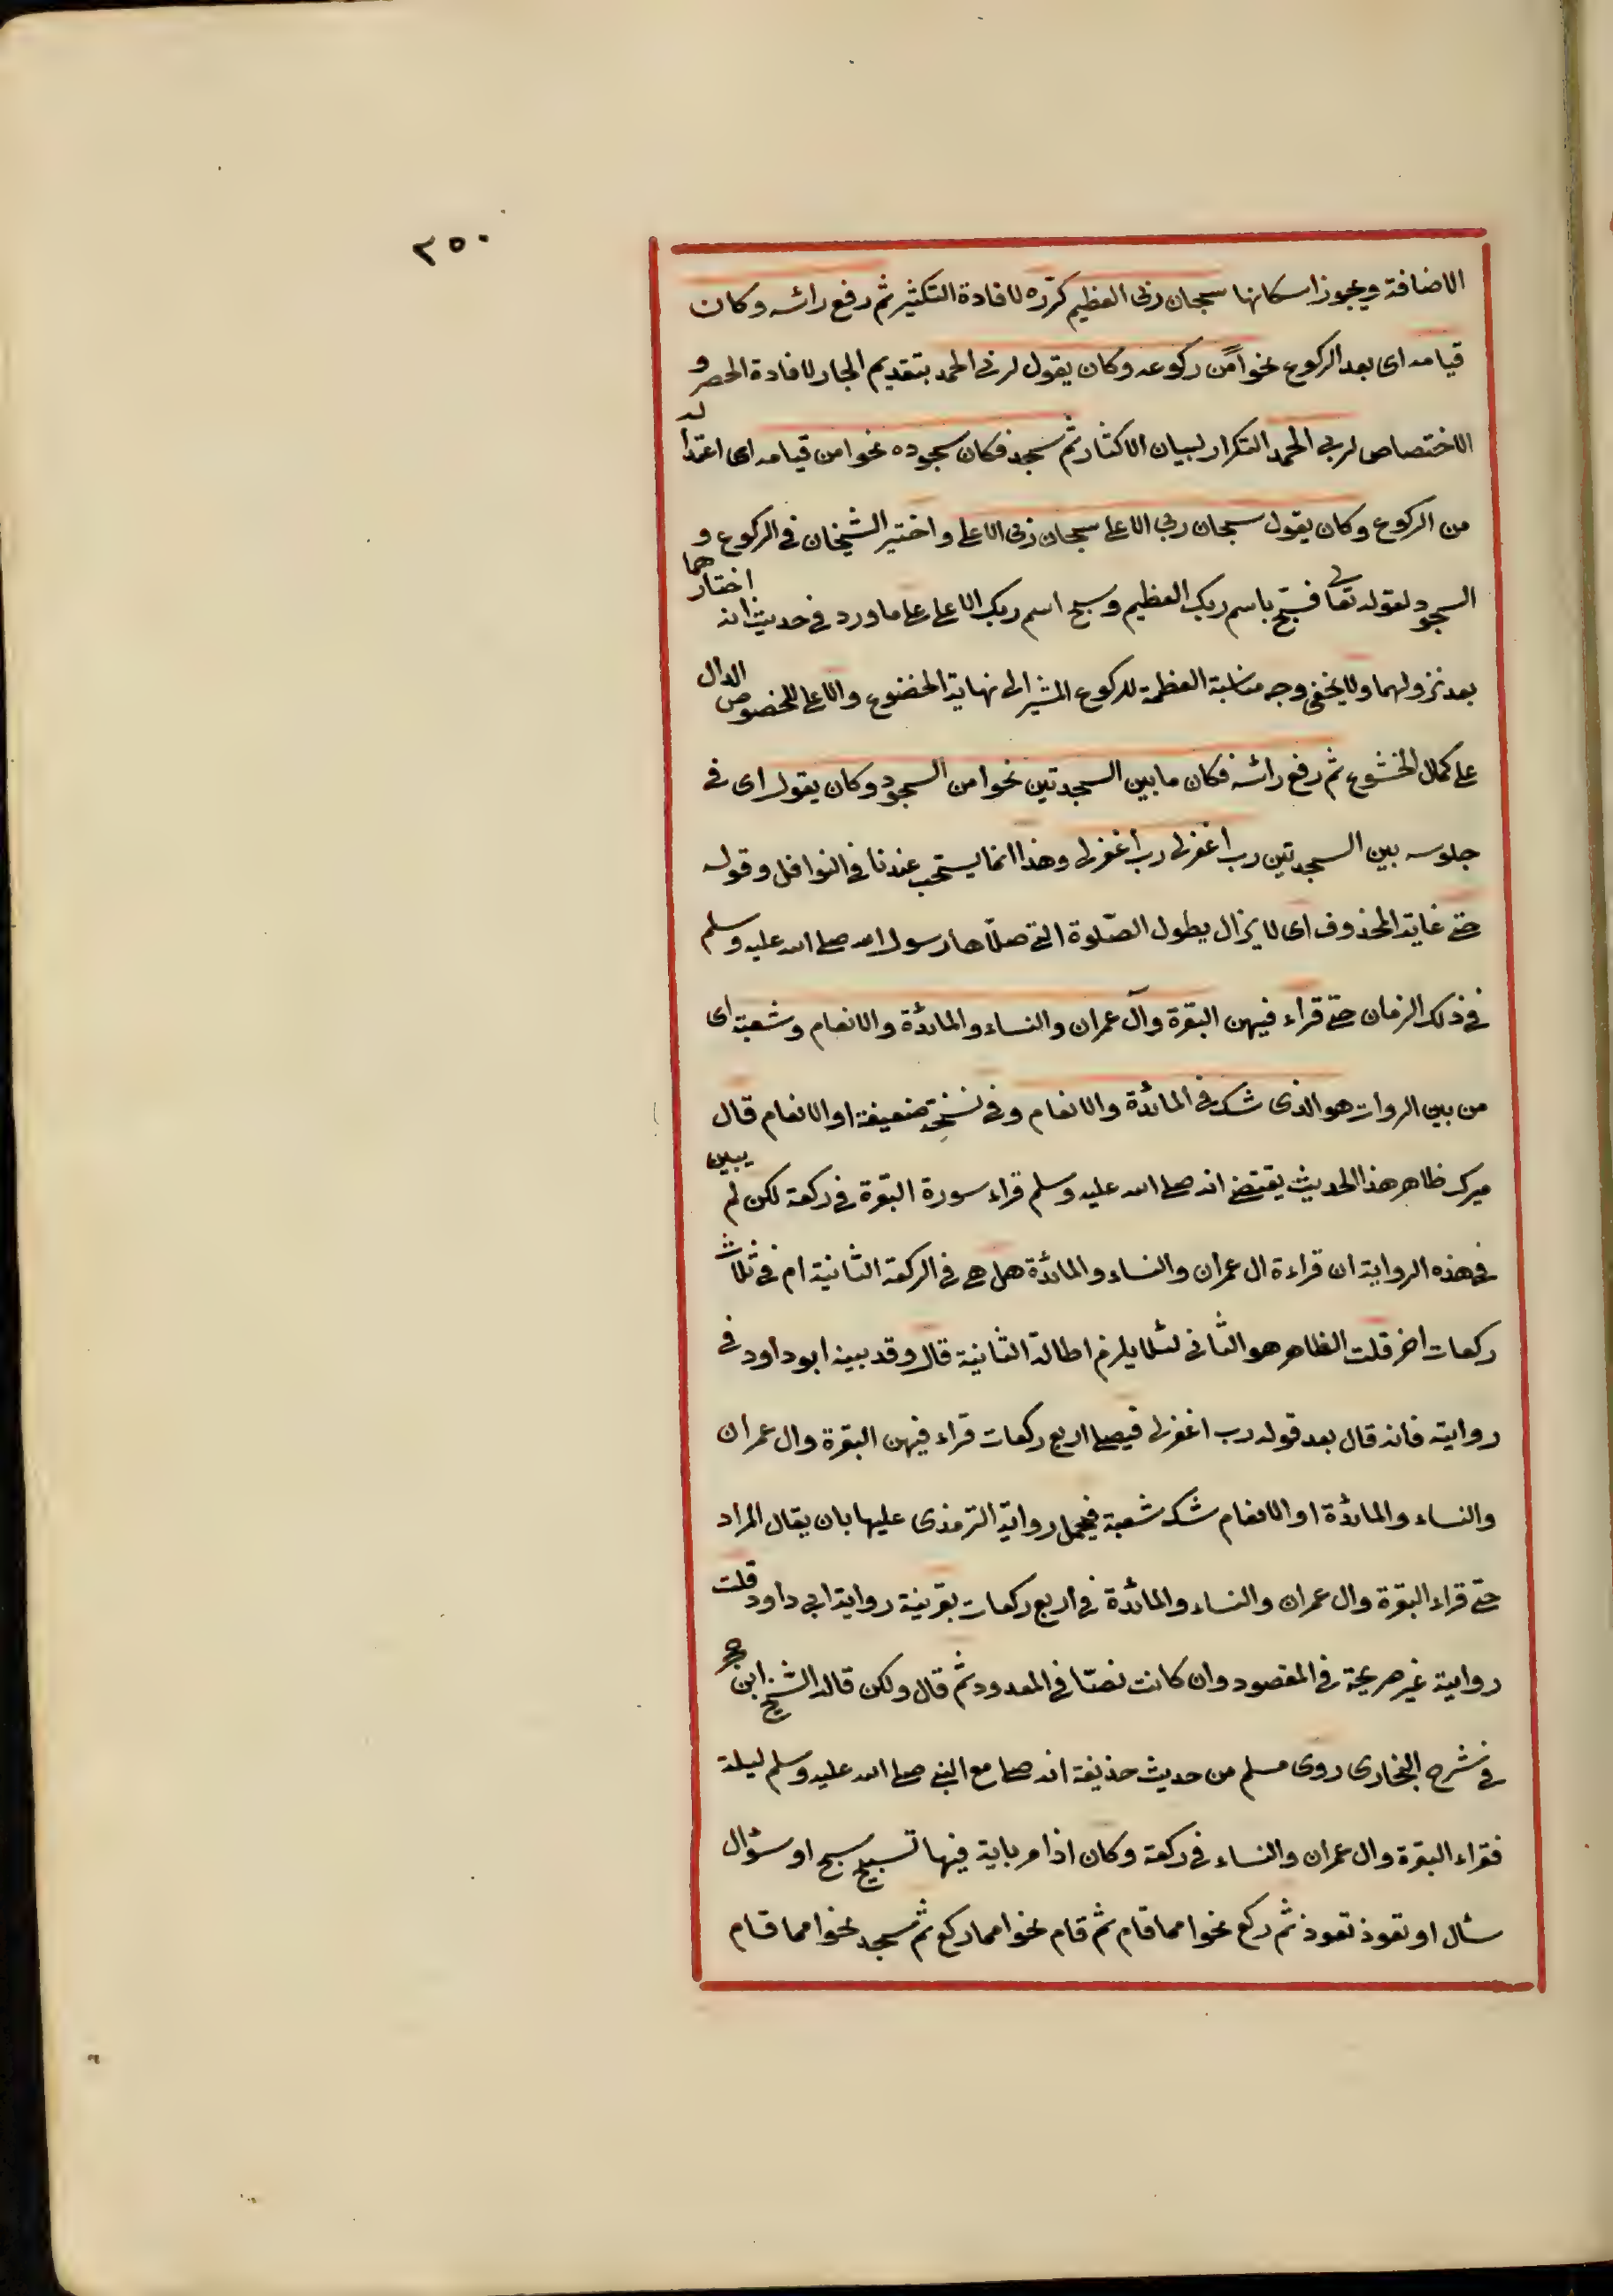 ٢٥٠
الاضافة ويجوز اسكانها سبحان ربي العظيم كرّره لافادة التكثير ثم رفع رائسه وكان
قيامه اى بعد الركوع نحوا من ركوعه وكان يقول لربي الحمد بتقديم الجار لافادة الحصر و
الاختصاص لربي الحمد التكرار لبيان الاكثار ثم سجد فكان سجوده نحوا من قيامه اى اعتداله
من الركوع وكان يقول سبحان ربي الاعلى سبحان ربي الاعلى واختير الشيخان في الركوع و
السجود لقوله تعالى فسبّح باسم ربك العظيم وسبح اسم ربك الاعلى على ما ورد في حديث انه اختارهما
بعد نزولهما ولا يخفى وجه مناسبة العظمة للركوع المشير الى نهاية الخضوع والاعلى للخصوص الدال
على كمال الخشوع ثم رفع رائسه فكان ما بين السجدتين نحوا من السجود وكان يقول اى في
جلوسه بين السجدتين رب اغفرلى رب اغفرلى وهذا انما يستحب عندنا في النوافل وقوله
حتى غاية المحذوف اى لا يزال يطول الصّلوة التى صلّاها رسول الله صلى الله عليه وسلم
في ذلك الزمان حتى قراء فيهن البقرة وآل عمران والنساء والمائدة والانعام وشعبة اى
من بين الروات هو الذى شك في المائدة والانعام وفي نسخة ضعيفة او الانعام قال
ميرك ظاهر هذا الحديث يقتضى انه صلى الله عليه وسلم قراء سورة البقرة في ركعة لكن لم يبين
في هذه الرواية ان قراءة ال عمران والنساء والمائدة هل هى في الركعة الثانية ام في ثلاث
ركعات اخر قلت الظاهر هو الثاني لئلا يلزم اطالة الثانية قال وقد بينه ابو داود في
رواية فانه قال بعد قوله رب اغفرلى فيصلى اربع ركعات قراء فيهن البقرة وال عمران
والنساء والمائدة او الانعام شك شعبة فيحمل رواية الترمذى عليها بان يقال المراد
حتى قراء البقرة وال عمران والنساء والمائدة في اربع ركعات بقرينة رواية ابي داود قلت
رواية غير صريحة في المقصود وان كانت نصّا في المعدود ثم قال ولكن قال الشيخ ابن حجر
في شرح البخارى روى مسلم من حديث حذيفة انه صلى مع النبي صلى الله عليه وسلم ليلة
فقراء البقرة وال عمران والنساء في ركعة وكان اذا مر باية فيها تسبيح سبح او سؤال
سئال او تعوذ تعوذ ثم ركع نحوا مما قام ثم قام نحوا مما ركع ثم سجد نحوا مما قام